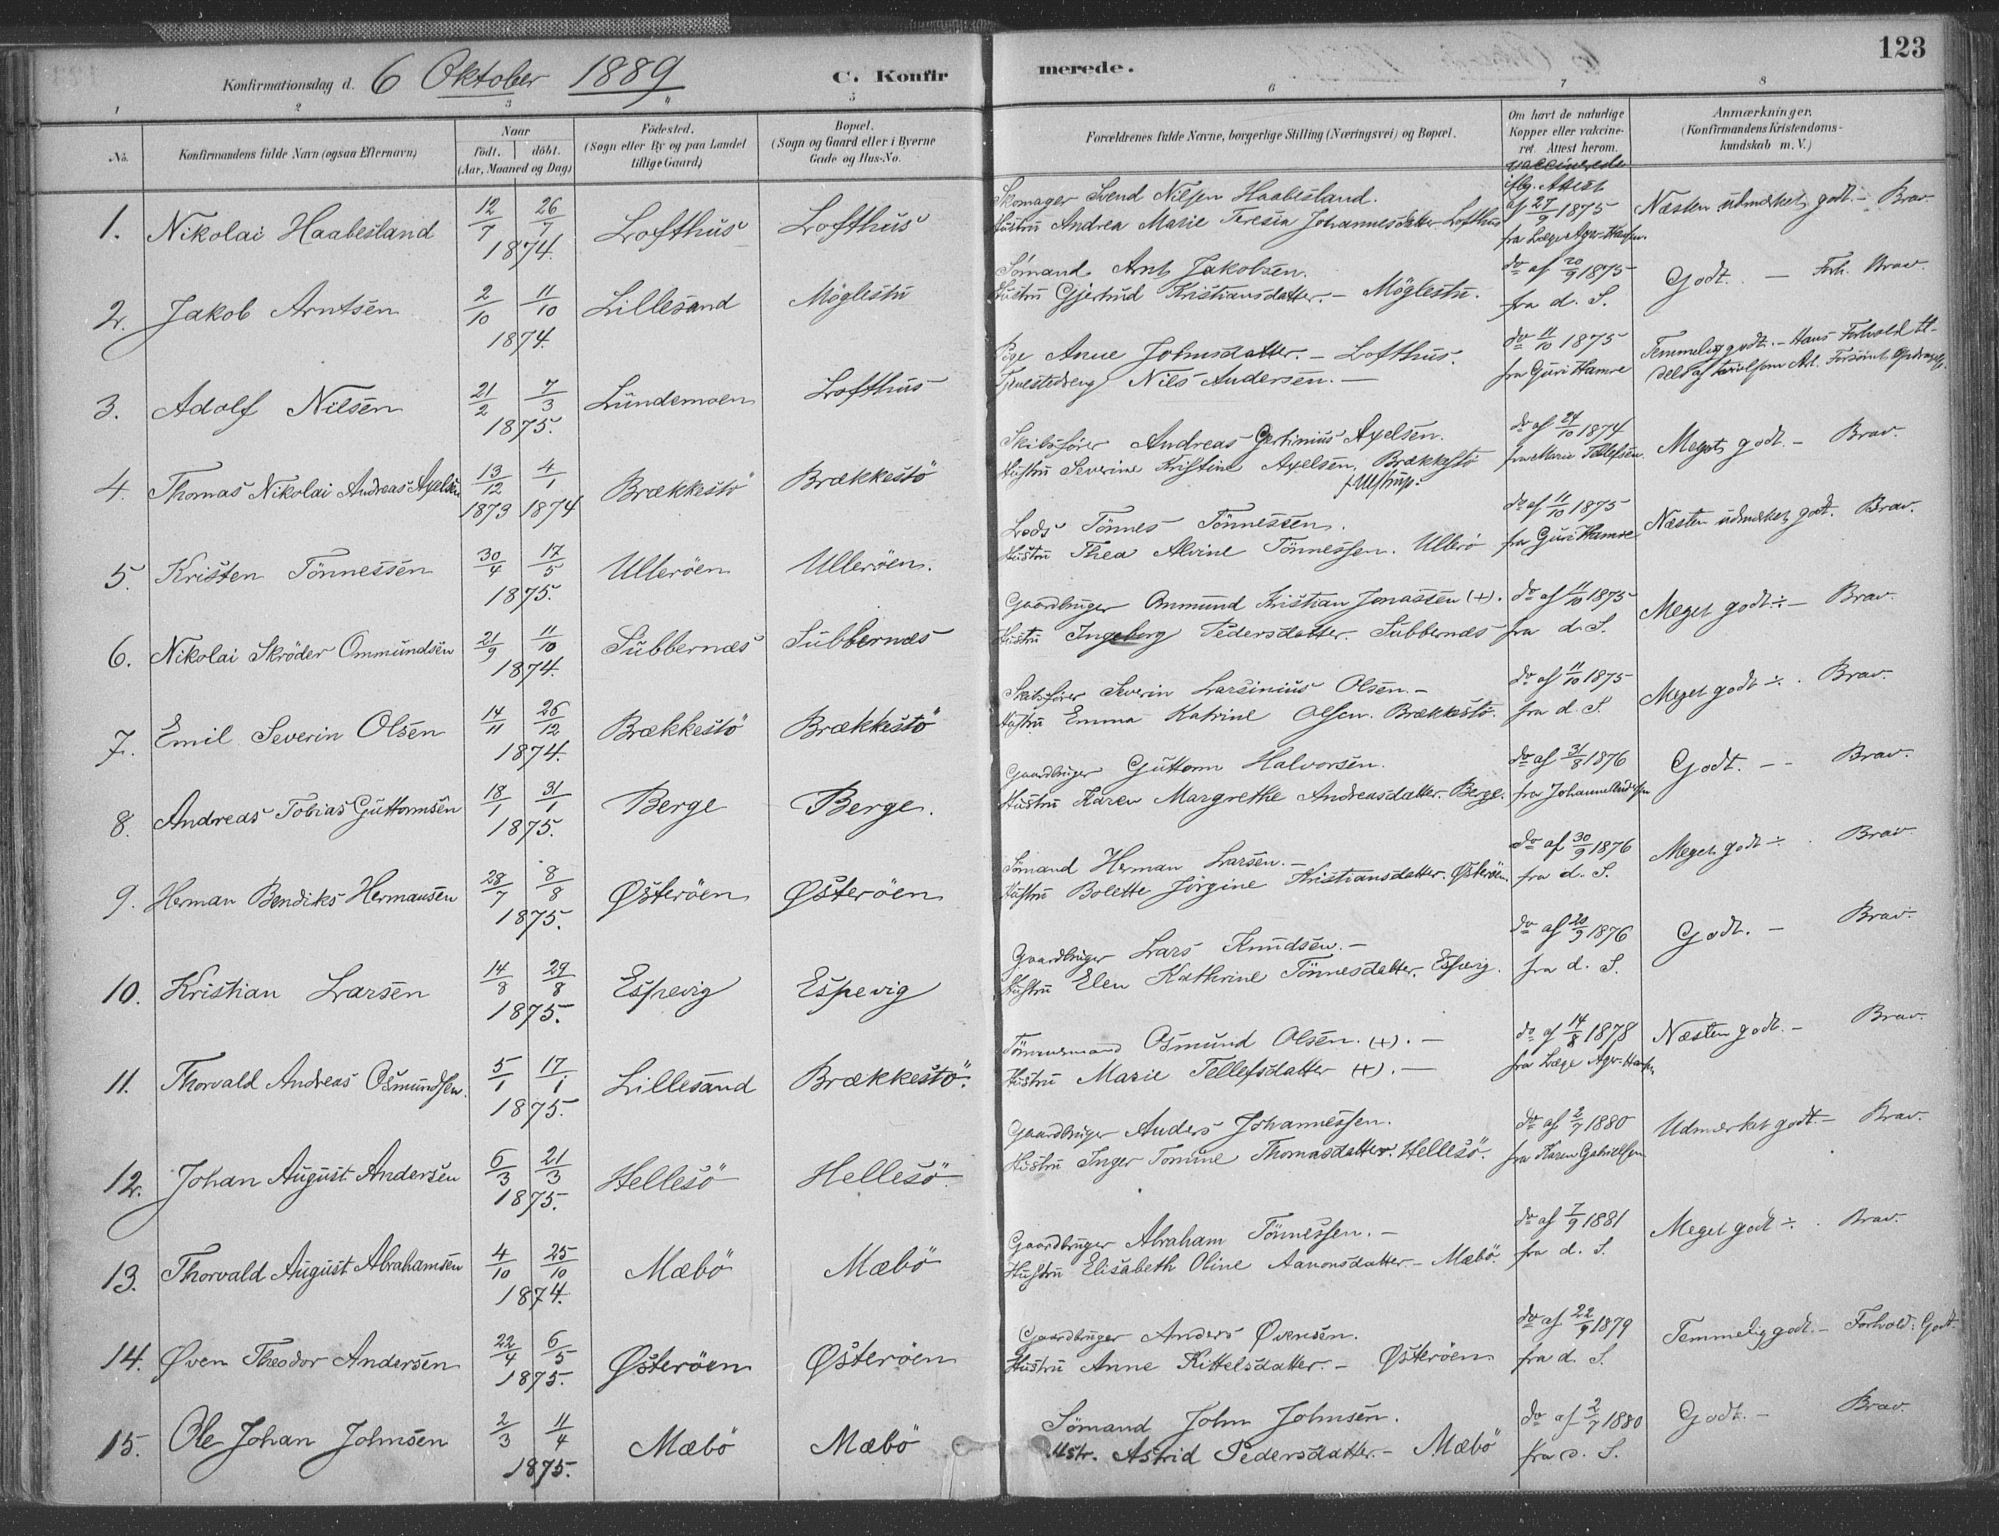 Konfirmationsdag d. 6 Oktober 1889 C. Konfirmerede. 123
1 2 3 4 5 6 7 8
No. Konfirmandens fulde Navn (ogsaa Efternavn) Naar født, døbt. (Aar, Maaned og Dag) Fødested. (Sogn eller By og paa Landet tillige Gaard) Bopæl. (Sogn og Gaard eller i Byerne Gade og Hus-No. Forældrenes fulde Navne, borgerlige Stilling (Næringsvei) og Bopæl. Om havt de naturlige Kopper eller vakcineret. Attest herom. Anmærkninger. (Konfirmandens Kristendomskundskab m. V.)
1. Nikolai Haabesland 12/7 26/7 1874. Lofthus Lofthus Skomager Svend Nilsen Haabesland. vaccinerede iflg. Attest af 27/9 1875 Næsten udmærket godt. – Brav.
Hustru Andrea Marie Teresia Johannesdatter Lofthus fra Læge Agw-Hansen.
2. Jakob Arntsen 2/10 11/10 1874. Lillesand Möglestu Sömand Arnt Jakobsen. do af 20/9 1875 Godt. – Forh. Brav.
Hustru Gjertrud Kristiansdatter. – Möglestu. fra d. S.
3. Adolf Nilsen 21/2 7/3 1875. Lundemoen Lofthus Pige Anne Johnsdatter. – Lofthus. do 11/10 1875 Temmelig godt. – Hans Forhold
Tjenestedreng Nils Andersen. – fra Guri Hamre
4. Thomas Nikolai Andreas Axelsen 13/12 1873 4/1 1874 Brækkestö Brækkestö Skibsfører Andreas Gertinius Axelsen. do af 24/10 1874 Meget godt. – Brav.
Hustru Severine Kristine Axelsen, Brækkestö f. Ulstrup. fra Marie Tellefsen
5. Kristen Tönnessen 30/4 17/5 1875. Ulleröen Ulleröen. Lods Tönnes Tönnessen. do af 11/10 1875 Næsten udmærket godt. Brav.
Hustru Thea Alvine Tönnessen. Ullerö fra Guri Hamre
6. Nikolai Skröder Ommundsen 21/9 11/10 1874. Subbernæs Subbernæs Gaardbruger Ommund Kristian Jonassen (+). do af 11/10 1875 Meget godt ÷ – Brav.
Hustru Ingeborg Pedersdatter. Subbernæs fra d. S.
7. Emil Severin Olsen 14/11 26/12 1874. Brækkestö Brækkestö Skibsfører Severin Larsinius Olsen. – do af 11/10 1875 Meget godt ÷. Brav.
Hustru Emma Katrine Olsen. Brækkestö. fra d. S
8. Andreas Tobias Guttormsen 18/1 31/1 1875. Berge Berge. Gaardbruger Guttorm Halvorsen. do af 31/8 1876 Godt. – – Brav.
Hustru Karen Margrethe Andreasdatter. Berge.
9. Herman Bendiks Hermansen 28/7 8/8 1875. Østeröen Østeröen Sömand Herman Larsen. – do af 30/9 1876 Meget godt ÷. Brav.
Hustru Bolette Jörgine Kristiansdatter. Østeröen. fra d. S.
10. Kristian Larsen 14/8 29/8 1875. Espevig Espevig Gaardbruger Lars Knudsen. – do af 20/9 1876 Godt. – Brav.
Hustru Elen Kathrine Tönnesdatter. Espevig. fra d. S.
11. Thorvald Andreas Osmundsen. 5/1 17/1 1875. Lillesand Brækkestö. Tömmermand Osmund Olsen. (+). – do af 14/8 1878 Næsten godt. – Brav.
Hustru Marie Tellefsdatter (+). – fra Læge Agw-Hansen
12. Johan August Andersen 6/3 21/3 1875. Hellesö Hellesö Gaardbruger Anders Johannessen. do af 2/7 1880 Udmærket godt. – Brav.
Hustru Inger Tomine Thomasdatter. Hellesö. fra Karen Gabrielsen
13. Thorvald August Abrahamsen 4/10 25/10 1874. Mæbö Mæbö Gaardbruger Abraham Tönnessen. – do af 7/9 1881 Meget godt ÷. Brav.
Hustru Elisabeth Oline Aanonsdatter – Mæbö. fra d. S.
14. Øven Theodor Andersen 22/4 6/5 1875. Østeröen Østeröen Gaardbruger Anders Øvensen. do af 22/9 1879 Temmelig godt. – Forhold: Godt.
Hustru Anne Kittelsdatter. – Østeröen fra d. S.
15. Ole Johan Johnsen 2/3 11/4 1875. Mæbö Mæbö Sömand John Johnsen. do af 2/7 1880 Godt. – Brav.
Hustr. Astrid Pedersdatter. – Mæbö fra d. S.